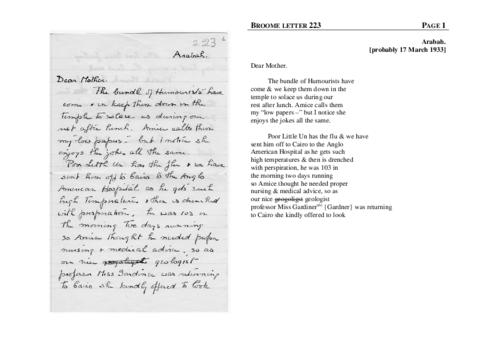 223
Arabah.
Dear Mother.
The bundle of Humourists have
come & we keep them down in the
temple to solace us during our
rest after lunch. Amice calls them
my "low papers" – but I notice she
enjoys the jokes all the same.
Poor Little Un has the flu & we have
sent him off to Cairo to the Anglo
American Hospital as he gets such
high temperatures & then is drenched
with perspiration, he was 103 in
the morning two days running
so Amice thought he needed proper
nursing & medical advice, so as
our nice geologist
professor Miss Gardiner was returning
to Cairo she kindly offered to look
BROOME LETTER 223 PAGE 1
Arabah.
[probably 17 March 1933]
Dear Mother.
The bundle of Humourists have
come & we keep them down in the
temple to solace us during our
rest after lunch. Amice calls them
my "low papers –" but I notice she
enjoys the jokes all the same.
Poor Little Un has the flu & we have
sent him off to Cairo to the Anglo
American Hospital as he gets such
high temperatures & then is drenched
with perspiration, he was 103 in
the morning two days running
so Amice thought he needed proper
nursing & medical advice, so as
our nice geologist
professor Miss Gardiner [Gardner] was returning
to Cairo she kindly offered to look